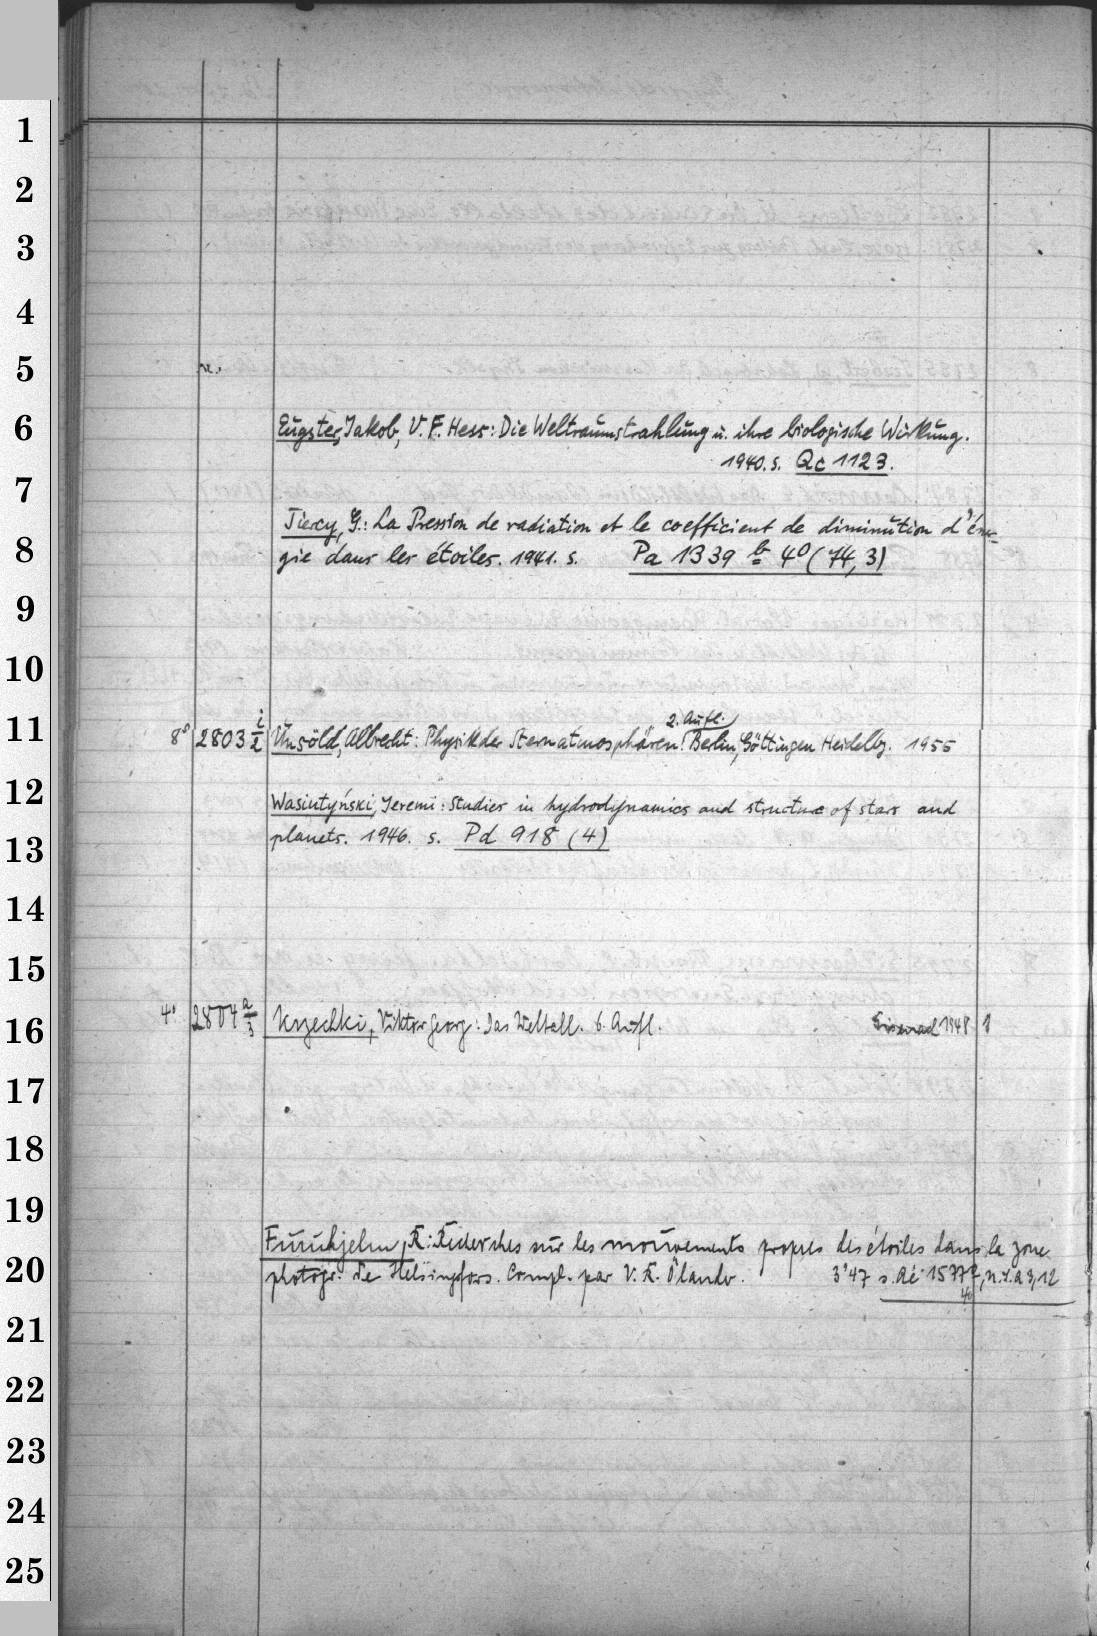 1
2
3
4
5
6
Eugster, Jakob, V. F. Hess: Die Weltraumstrahlung u. ihre biologische Wirkung.
1940. s. Qc 1123.
7
Tiercy, G.: La Pression de radiation et le coefficient de diminution d'éner-
8
gie dans les étoiles. 1941. s. Pa 1339 b 4° (74, 3)
9
10
2. Aufl.
11
8° 2803 i/2 Unsöld, Albrecht: Physik der Sternatmosphären. Berlin, Göttingen Heidelbg. 1955
12
Wasiutyński, Jeremi: Studies in hydrodynamics and structure of stars and
13
planets. 1946. s. Pd 918 (4)
14
15
16
4° 2804 a/3 Viktor Georg: Das Weltall. 6. Aufl. 1948 1
17
18
19
Furuhjelm, R.: Recherches sur les mouvements propres des étoiles dans la zone
20
photogr. de Helsingfors. Compl. par V. R. Ölander. 3'47 s. Ac 1577, n. S. a 3, 12
4°
21
22
23
24
25